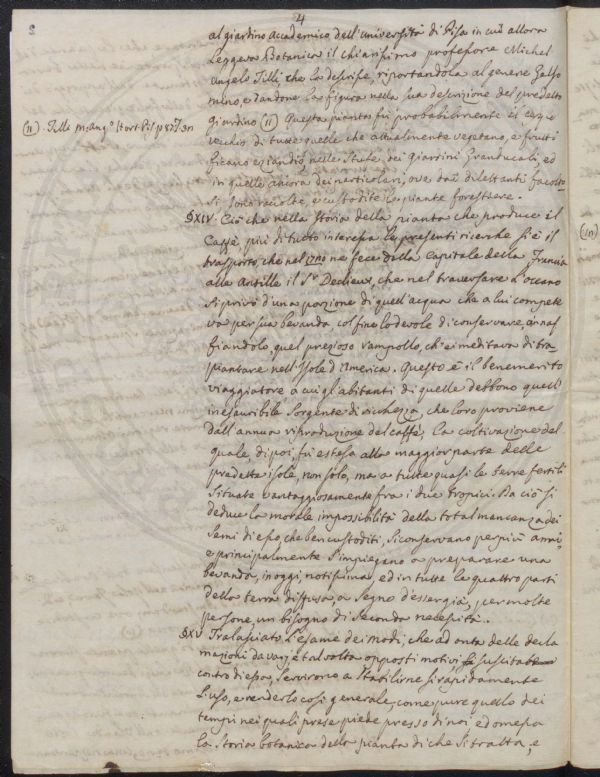 4
8
al giardino Accademico dell'università di Pisa in cui allora
Leggeva Botanica il chiarissimo professore Michel
Angelo Tilli, che la descrisse, riportandola al genere Gelso
mino, e dandone la figura nella sua descrizione del predetto
giardino (11) Questa pianta fù probabilmente il ceppo
vecchio di tutte quelle che attualmente vegetano, e frutti
ficano eziandio nelle Stufe dei giardini Granducali, ed
in quelle ancora dei particolari, ove dai dilettanti facolto
si sono raccolte, e custodite le piante forestiere.
(11). Tilli M: Ang.o Hort. Pis. p. 87. T. 32
§XIV. Ciò che nella storia della pianta che produce il
Caffè, più di tutto interessa le presenti ricerche si è il
trasporto, che nel 1720 ne fece dalla capitale della Francia
alle Antille il Sr. Declieux, che nel traversare l'oceano
si privò d'una porzione di quell'acqua che a lui compete
va per sua bevanda col fine lodevole di conservare, annaf
fiandolo, quel prezioso rampollo, ch'ei meditava di tra
piantare nell'Isole d'America. Questo è il benemerito
viaggiatore a cui gl'abitanti di quelle debbono quell'
inesauribile Sorgente di ricchezza, che loro proviene
dall'annua riproduzione del caffè, la coltivazione del
quale, di poi, fù estesa alla maggior parte delle
predette isole, non solo, ma a tutte quasi le terre fertili
situate vantaggiosamente fra i due Tropici. Da ciò si
deduce la morale impossibilità della total mancanza dei
semi di esso, che ben custoditi, si conservano per più anni,
e principalmente s'impiegano a preparare una
bevanda, in oggi, notissima, ed in tutte le quattro parti
della terra diffusa, a segno d'esser già, per molte
persone, un bisogno di seconda necessità.
§XV Tralasciato l'esame dei modi, che ad onta delle decla
mazioni da varj, e talvolta opposti motivi suscitate
contro di esso, servirono a stabilirne sì rapidamente
l'uso, e renderlo così generale, come pure quello dei
tempi nei quali prese piede presso di noi ed omessa
la storia botanica della pianta di che si tratta, e